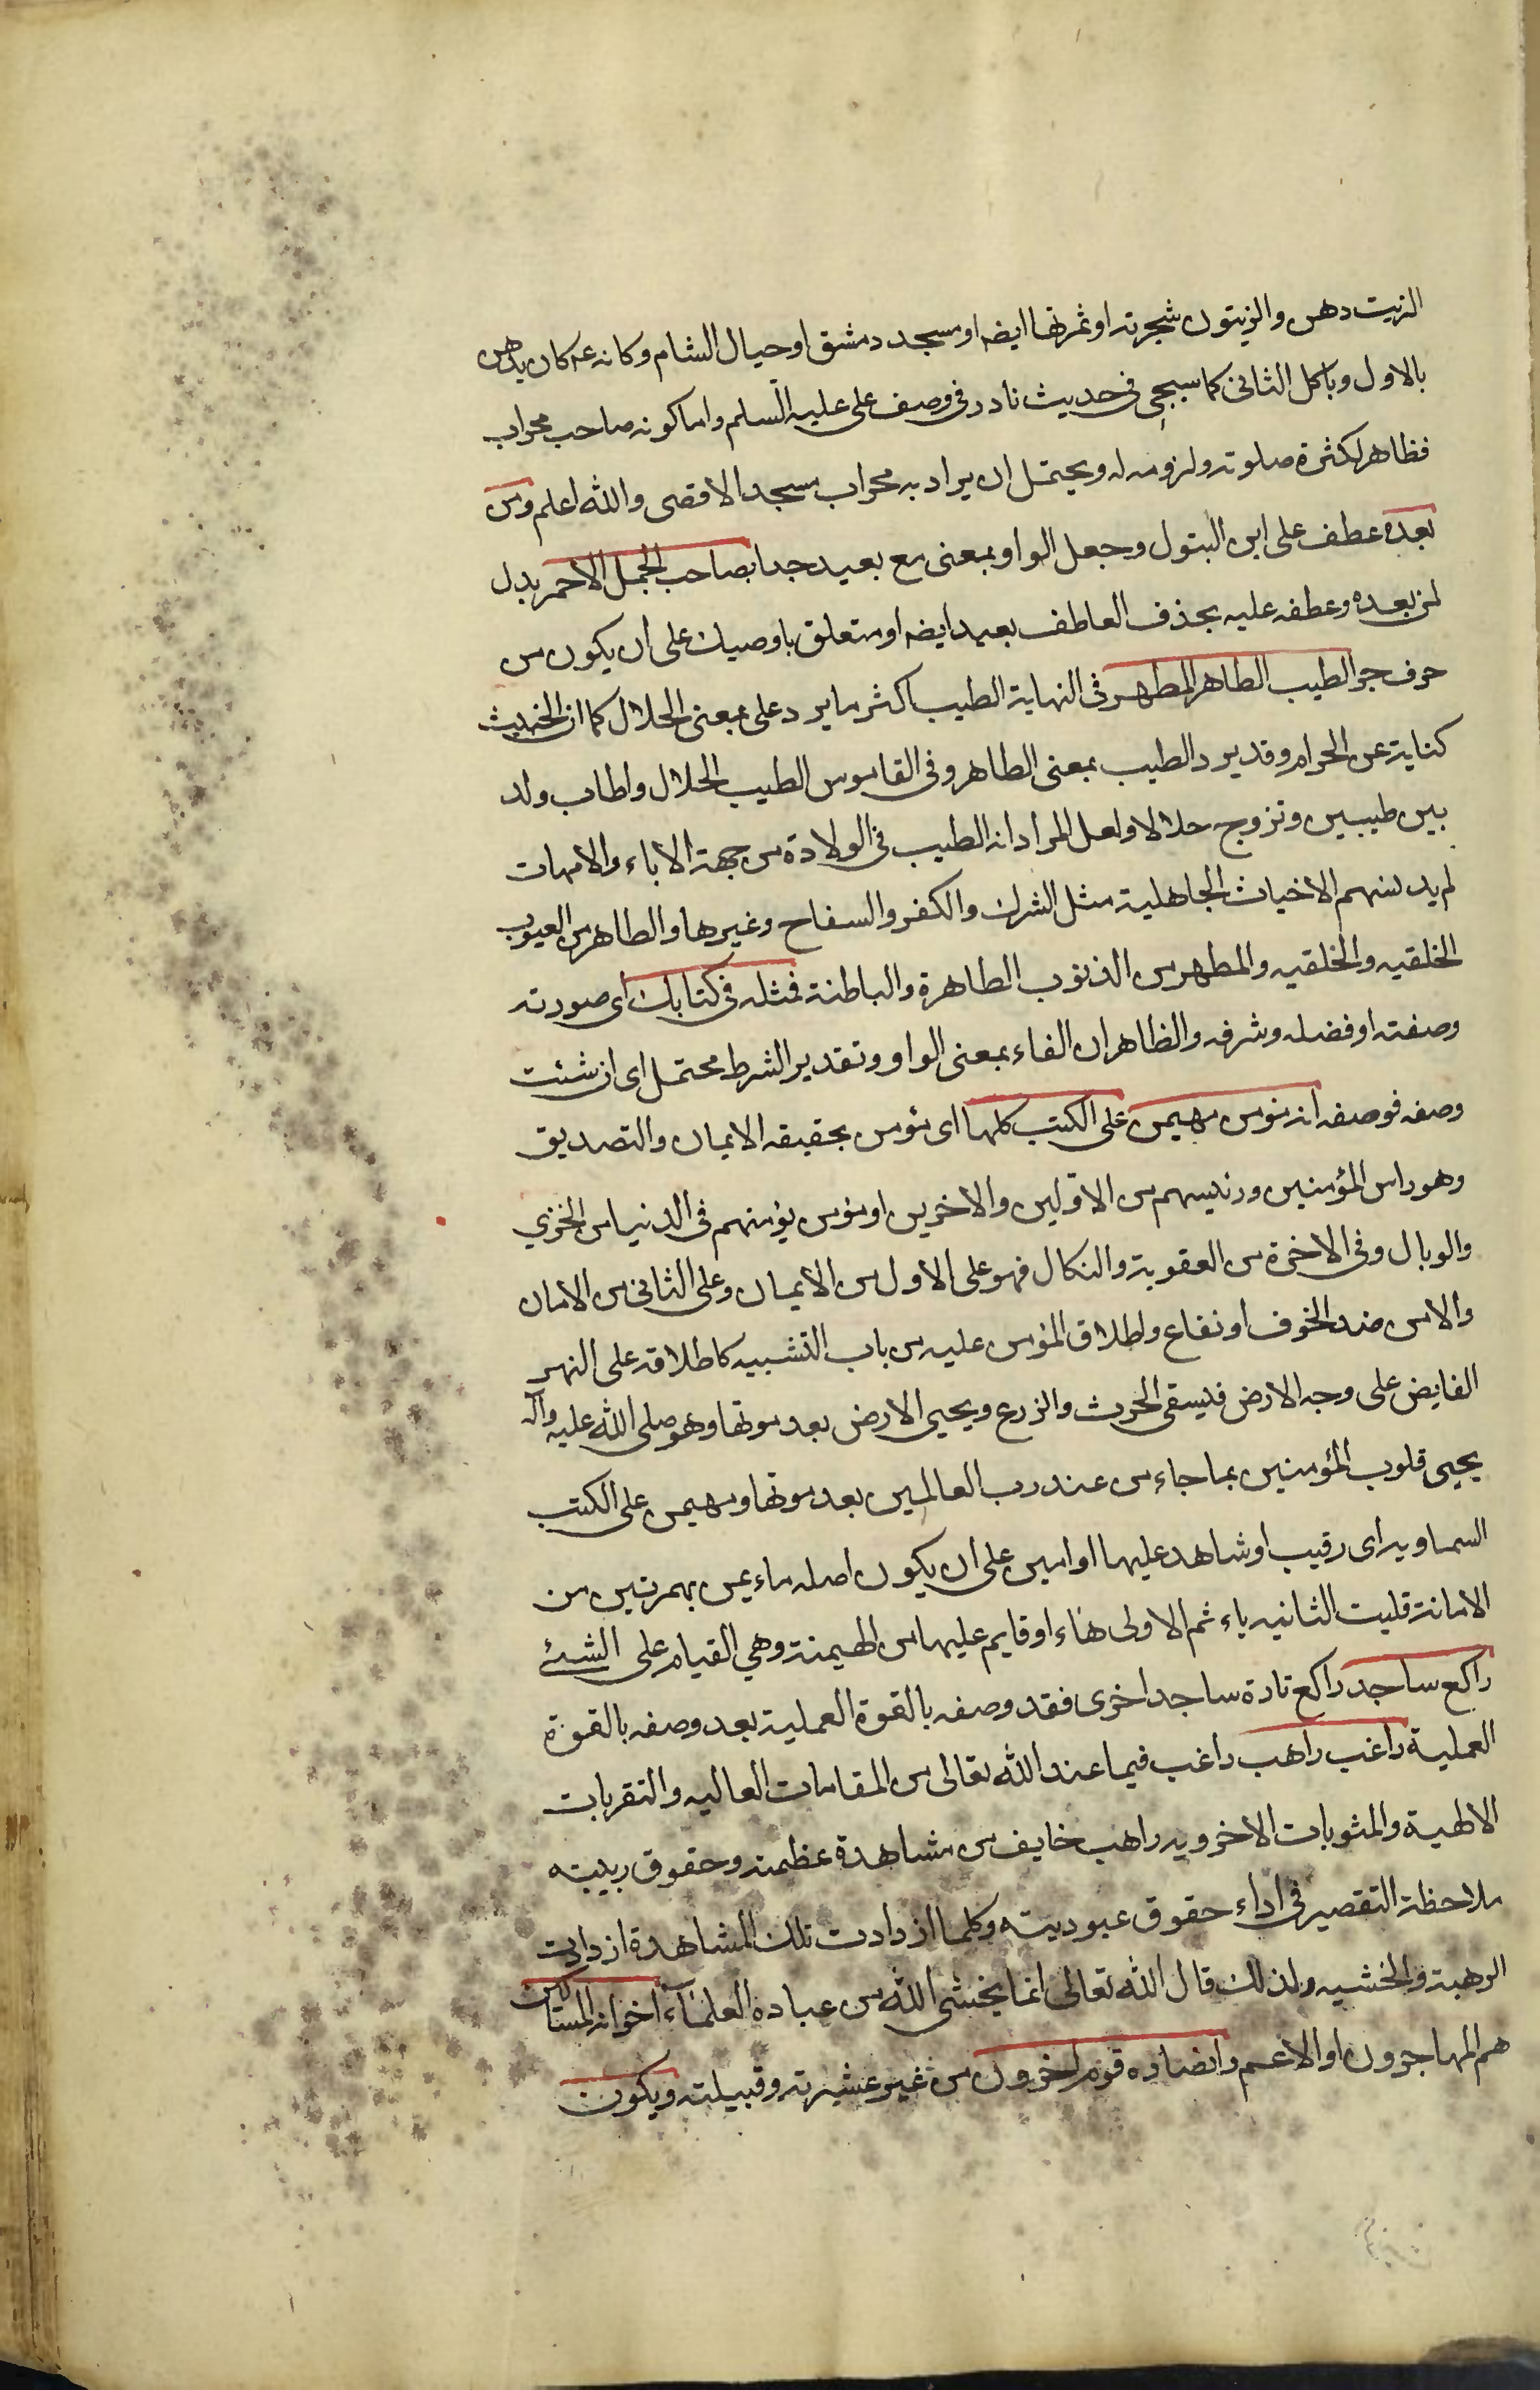 الزيت دهن والزيتون شجرته او ثمرتها ايضه او مسجد دمشق او حبال الشام وكانه عم كان يدهن
بالاول وياكل الثانى كما سيجئ فى حديث نادر فى وصف على عليه السلم واما كونه صاحب محراب
فظاهر لكثرة صلوته ولزومه له ويحتمل ان يراد به محراب مسجد الاقصى والله اعلم ومن
بعده عطف على ابن البتول وجعل الواو بمعنى مع بعيد جدا بصاحب الجمل الاحمر بدل
لمن بعده وعطفه عليه بحذف العاطف بعيد ايضه او متعلق باوصيك على ان يكون من
حرف جر الطيب الطاهر المطهر فى النهاية الطيب اكثر ما يرد على بمعنى الحلال كما ان الخبيث
كناية عن الحرام وقد يرد الطيب بمعنى الطاهر وفى القاموس الطيب الحلال واطاب ولد
بين طيبين وتزوج حلالا ولعل المراد انه الطيب فى الولادة من جهة الاباء والامهات
لم يدسنهم الاخباث الجاهلية مثل الشرك والكفر والسفاح وغيرها والطاهر من العيوب
الخلقيه والخلقيه والمطهر من الذنوب الظاهرة والباطنة فمثله فى كتابك اى صورته
وصفته او فضله وشرفه والظاهر ان الفاء بمعنى الواو وتقدير الشرط محتمل اى ان شئت
وصفه فوصفه انه مؤمن مهيمن على الكتب كلها اى مؤمن بحقيقه الايمان والتصديق
وهو راس المؤمنين ورئيسهم من الاولين والاخرين او مؤمن يؤمنهم فى الدنيا من الخزي
والوبال وفى الاخرة من العقوبة والنكال فهو على الاول من الايمان وعلى الثانى من الامان
والامن ضد الخوف او نفاع واطلاق المؤمن عليه من باب التشبيه كاطلاقه على النهر
الفايض على وجه الارض فيسقى الحرث والزرع ويحيى الارض بعد موتها وهو صلى الله عليه وآله
يحيى قلوب المؤمنين بما جاء من عند رب العالمين بعد موتها ومهيمن على الكتب
السماويه اى رقيب او شاهد عليها او امين على ان يكون اصله ماءيمن بهمزتين من
الامانة قلبت الثانيه ياء ثم الاولى هاء او قايم عليها من الهيمنة وهي القيام على الشئ
راكع ساجد راكع تارة ساجد اخرى فقد وصفه بالقوة العملية بعد وصفه بالقوة
العملية راغب راهب راغب فيما عند الله تعالى من المقامات العاليه والتقربات
الالهية والمثوبات الاخرويه راهب خايف من مشاهدة عظمته وحقوق ربيبته
ملاحظة التقصير فى اداء حقوق عبوديته وكلما ازدادت تلك المشاهدة ازدادت
الرهبة والخشيه ولذلك قال الله تعالى انما يخشى الله من عباده العلماء اخوانه المساكين
هم المهاجرون او الاعم وانصاره قوم اخرون من غير عشيرته وقبيلته ويكون